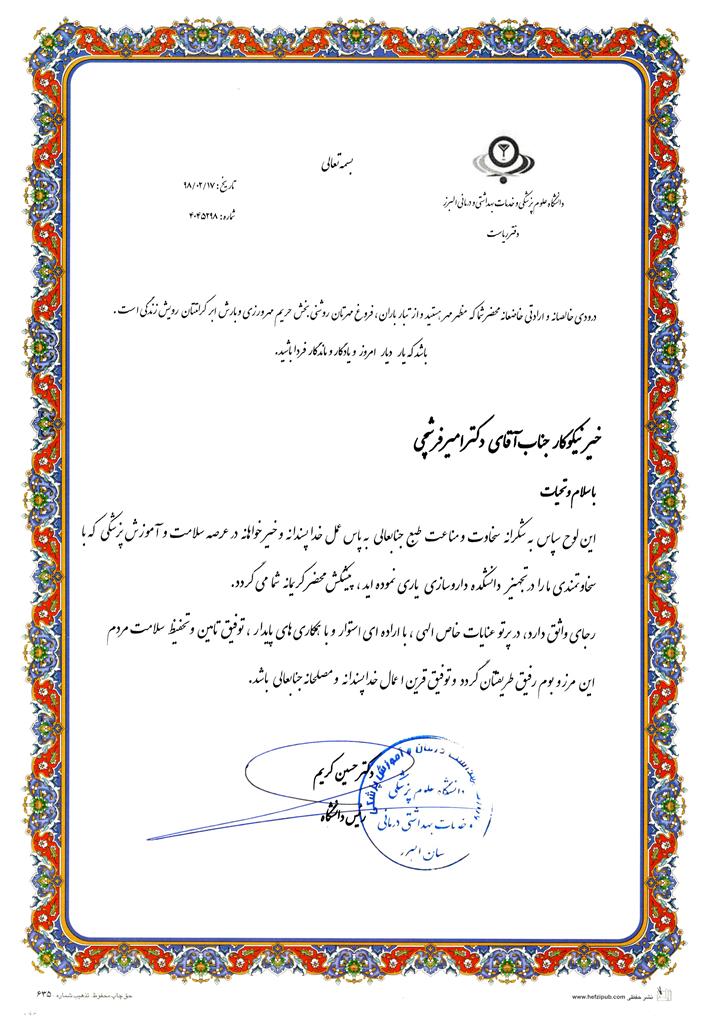 بسمه تعالی
دانشگاه علوم پزشکی و خدمات بهداشتی و درمانی البرز
دفتر ریاست
تاریخ: ۹۸/۰۲/۱۷
شماره: ۴۰۴۵۲۹۸
درودی خالصانه و ارادتی خاضعانه محضر شما که مظهر مهر هستید و از تبار باران، فروغ مهرتان روشنی بخش حریم مهرورزی و بارش ابر کرامتتان رویش زندگی است.
باشد که یار دیار امروز و یادگار و ماندگار فردا باشید.
خیر نیکوکار جناب آقای دکتر امیر فرشچی
با سلام و تحیات
این لوح سپاس به شکرانه سخاوت و مناعت طبع جنابعالی به پاس عمل خداپسندانه و خیرخواهانه در عرصه سلامت و آموزش پزشکی که با
سخاوتمندی ما را در تجهیز دانشکده داروسازی یاری نموده اید، پیشکش محضر کریمانه شما می گردد.
رجای واثق دارد، در پرتو عنایات خاص الهی، با اراده ای استوار و با همکاری های پایدار، توفیق تامین و تحفیظ سلامت مردم
این مرز و بوم رفیق طریقتان گردد و توفیق قرین اعمال خداپسندانه و مصلحانه جنابعالی باشد.
دکتر حسین کریم
رئیس دانشگاه
درمان و آموزش پزشکی
دانشگاه علوم پزشکی
خدمات بهداشتی درمانی
البرز
نشر حفظی www.hefzipub.com
حق چاپ محفوظ. تذهیب شماره ۶۳۵